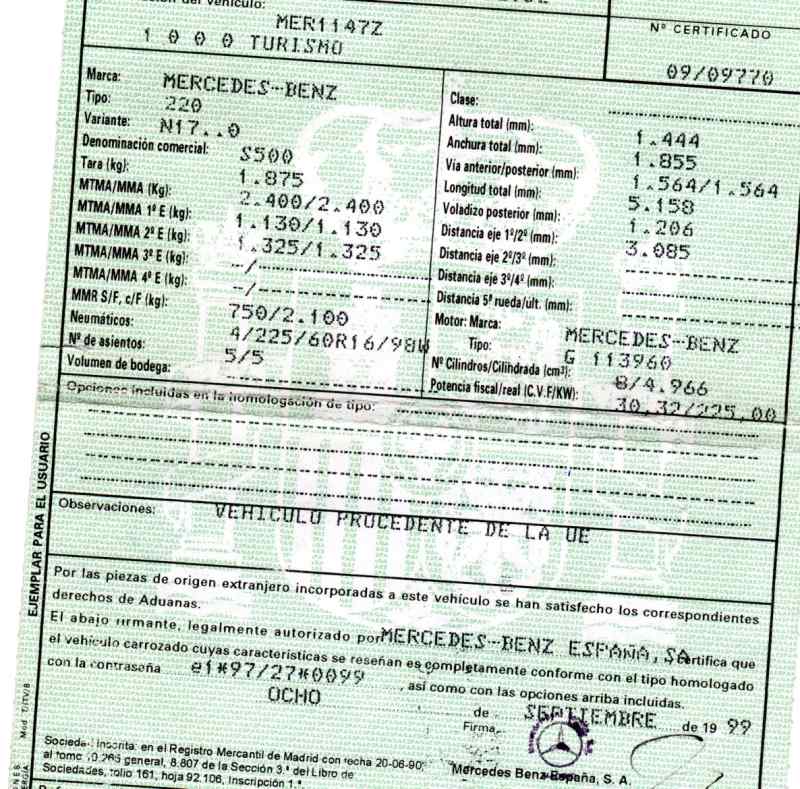 del vehículo:
MER1147Z
1 0 0 0 TURISMO
Nº CERTIFICADO
09/09770
Marca: MERCEDES-BENZ
Tipo: 220
Variante: N17..0
Denominación comercial: S500
Tara (kg): 1.875
MTMA/MMA (Kg): 2.400/2.400
MTMA/MMA 1º E (kg): 1.130/1.130
MTMA/MMA 2º E (kg): 1.325/1.325
MTMA/MMA 3º E (kg): --/
MTMA/MMA 4º E (kg): --/--
MMR S/F, c/F (kg): 750/2.100
Neumáticos: 4/225/60R16/98W
Nº de asientos: 5/5
Volumen de bodega:
Clase:
Altura total (mm): 1.444
Anchura total (mm): 1.855
Vía anterior/posterior (mm): 1.564/1.564
Longitud total (mm): 5.158
Voladizo posterior (mm): 1.206
Distancia eje 1º/2º (mm): 3.085
Distancia eje 2º/3º (mm):
Distancia eje 3º/4º (mm):
Distancia 5ª rueda/últ. (mm):
Motor: Marca: MERCEDES-BENZ
Tipo: G 113960
Nº Cilindros/Cilindrada (cm³): 8/4.966
Potencia fiscal/real (C.V.F/KW): 30,32/225,00
Opciones incluidas en la homologación de tipo:
Observaciones: VEHICULO PROCEDENTE DE LA UE
Por las piezas de origen extranjero incorporadas a este vehículo se han satisfecho los correspondientes
derechos de Aduanas.
El abajo firmante, legalmente autorizado por MERCEDES-BENZ ESPAÑA, SA ertifica que
el vehículo carrozado cuyas características se reseñan es completamente conforme con el tipo homologado
con la contraseña e1*97/27*0099 , así como con las opciones arriba incluidas.
OCHO de SEPTIEMBRE de 19 99
Firma,
Mercedes Benz España, S. A.
Sociedad Inscrita: en el Registro Mercantil de Madrid con fecha 20-06-90;
al tomo 10.265 general, 8.807 de la Sección 3.ª del Libro de
Sociedades, folio 161, hoja 92.106, Inscripción 1.ª
EJEMPLAR PARA EL USUARIO
Mod. T/ITV/8